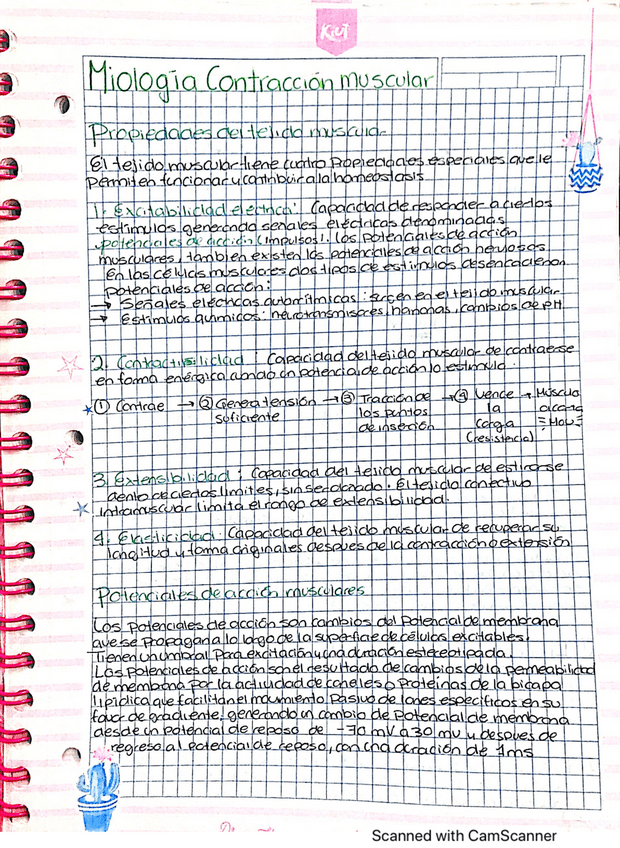 Kiut
Miología Contracción muscular
Propiedades del tejido muscular
El tejido muscular tiene cuatro propiedades especiales que le
permiten funcionar y contribuir a la homeostasis
1. Excitabilidad eléctrica: Capacidad de responder a ciertos
estímulos generando señales eléctricas denominadas
potenciales de acción (impulsos). Los potenciales de acción
musculares, también existen los potenciales de acción nerviosos
En las células musculares dos tipos de estímulos desencadenan
potenciales de acción:
→ Señales eléctricas autorrítmicas: surgen en el tejido muscular
→ Estímulos químicos: neurotransmisores, hormonas, cambios de pH
2. Contractibilidad: Capacidad del tejido muscular de contraerse
en forma enérgica cuando un potencial de acción lo estimula.
① Contrae → ② Genera tensión → ③ Tracción de → ④ Vence → Músculo
suficiente los puntos la
de inserción carga
(resistencia)
3. Extensibilidad: Capacidad del tejido muscular de estirarse
dentro de ciertos límites, sin ser dañado. El tejido conectivo
intramuscular limita el rango de extensibilidad.
4. Elasticidad: Capacidad del tejido muscular de recuperar su
longitud y forma originales después de la contracción o extensión
Potenciales de acción musculares
Los potenciales de acción son cambios del potencial de membrana
que se propagan a lo largo de la superficie de células excitables.
Tienen un umbral para excitación y una duración estereotipada.
Los potenciales de acción son el resultado de cambios de la permeabilidad
de membrana por la actividad de canales o proteínas de la bicapa
lipídica que facilitan el movimiento pasivo de iones específicos en su
favor de gradiente, generando un cambio de potencial de membrana
desde un potencial de reposo de -70 mV a 30 mV y después de
regreso al potencial de reposo, con una duración de 1ms
Scanned with CamScanner